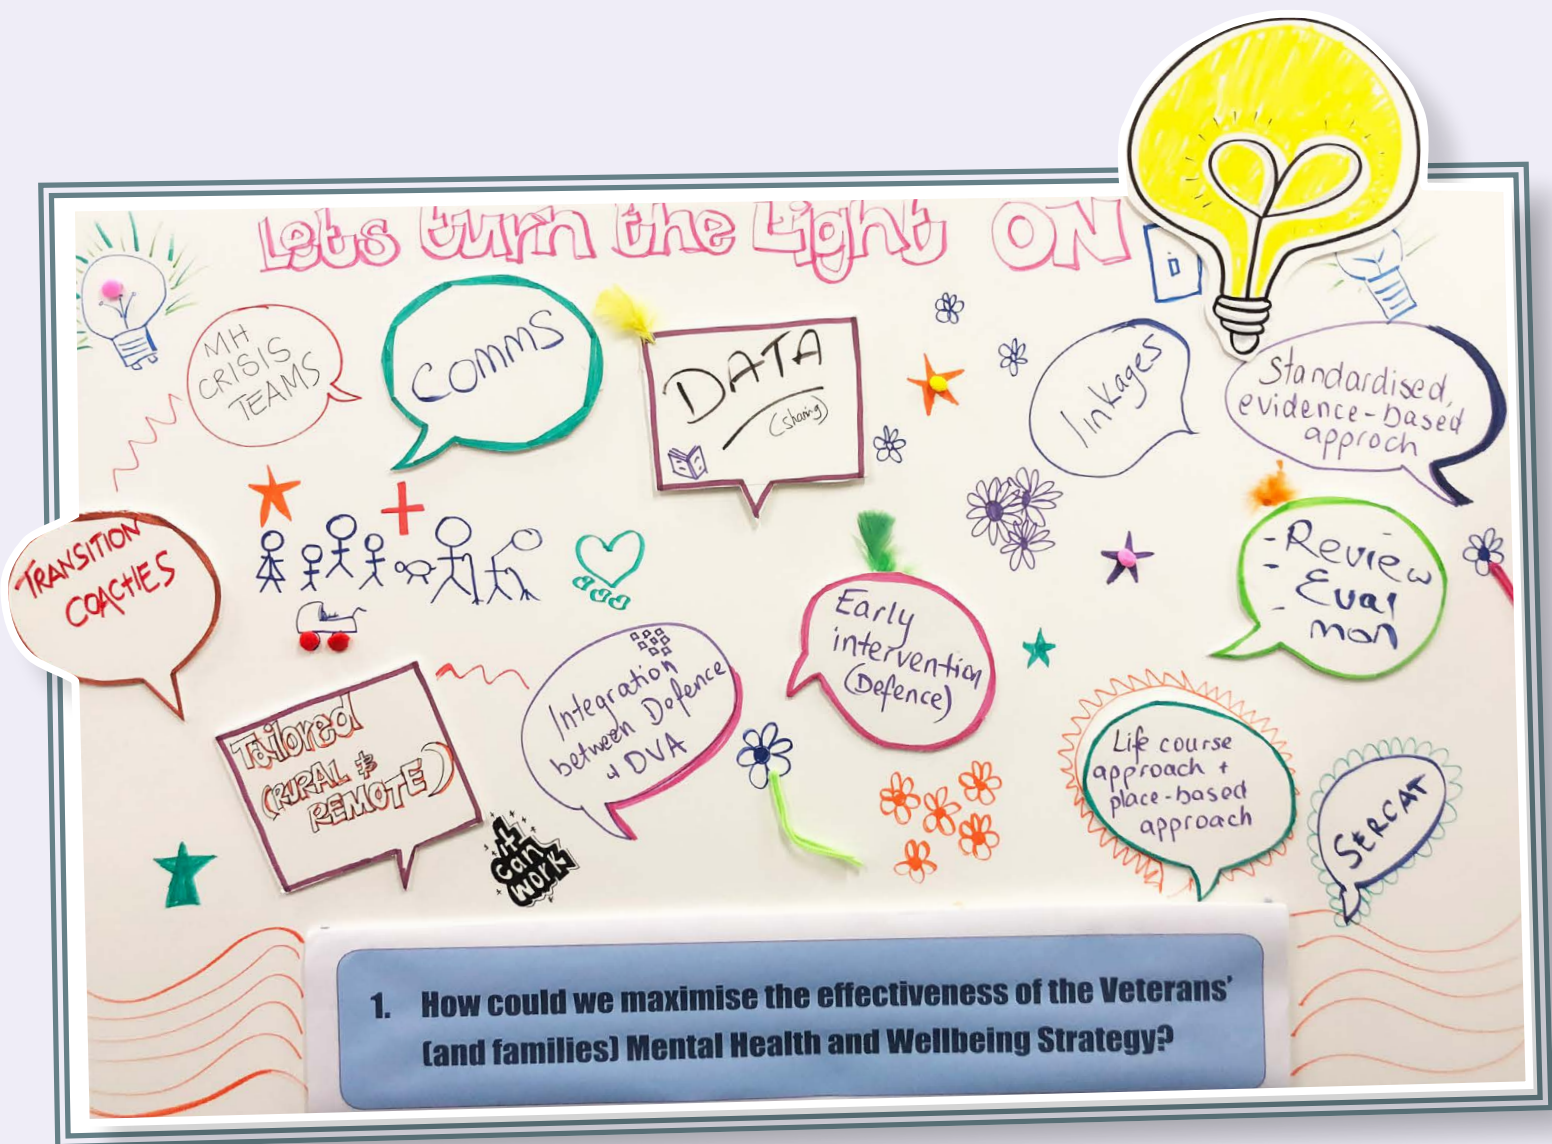 Lets turn the Light ON
MH
CRISIS
TEAMS
COMMS
DATA
(sharing)
linkages
Standardised,
evidence-based
approch
TRANSITION
COACHES
Early
intervention
(Defence)
- Review
- Eval
- mon
Tailored
(RURAL &
REMOTE)
Integration
between Defence
+ DVA
It
can
work
Life course
approach +
place-based
approach
SERCAT
1. How could we maximise the effectiveness of the Veterans'
(and families) Mental Health and Wellbeing Strategy?